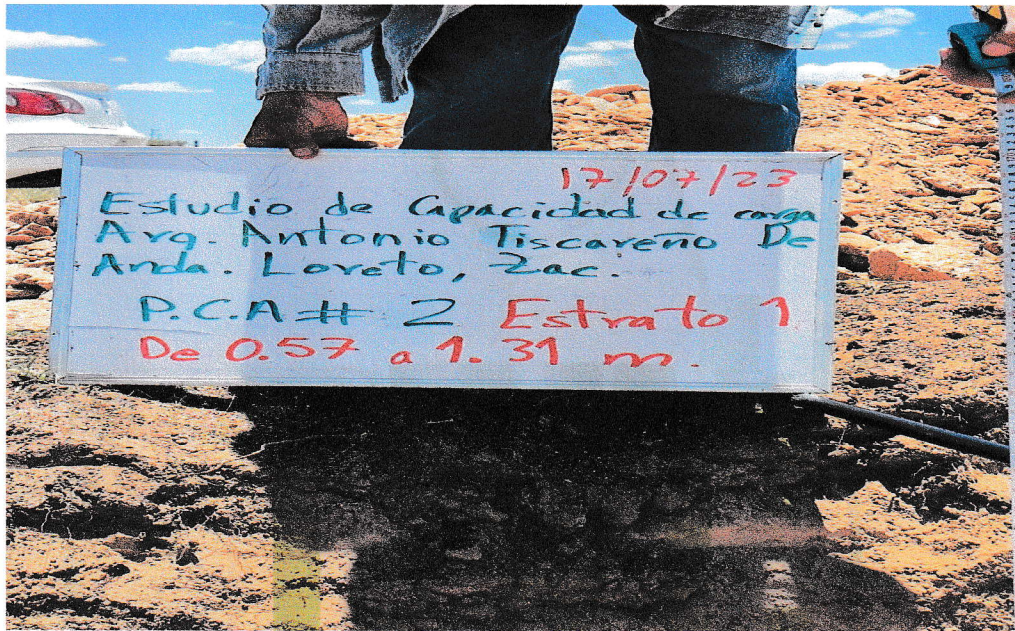 17/07/23
Estudio de Capacidad de carga
Arq. Antonio Tiscareño De
Anda. Loreto, Zac.
P.C.A # 2 Estrato 1
De 0.57 a 1.31 m.